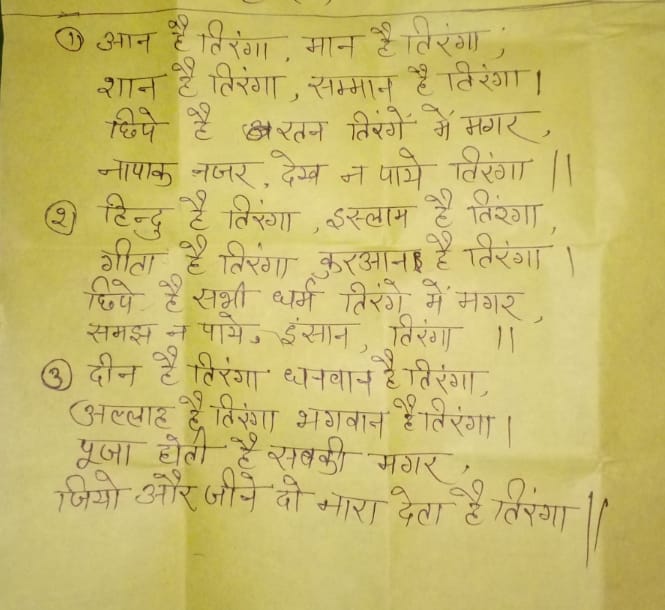 ① आन है तिरंगा, मान है तिरंगा,
शान है तिरंगा, सम्मान है तिरंगा।
छिपे है रतन तिरंगें में मगर,
नापाक नजर, देख न पाये तिरंगा ||
② हिन्दु है तिरंगा, इस्लाम है तिंरगा,
गीता है तिरंगा कुरआन है तिरंगा।
छिपे है सभी धर्म तिरंगे में मगर,
समझ न पाये, इंसान, तिरंगा ||
③ दीन है तिरंगा धनवान है तिरंगा,
अल्लाह है तिरंगा भगवान है तिरंगा।
पूजा होती है सबकी मगर,
जियो और जीने दो नारा देता है तिरंगा ||